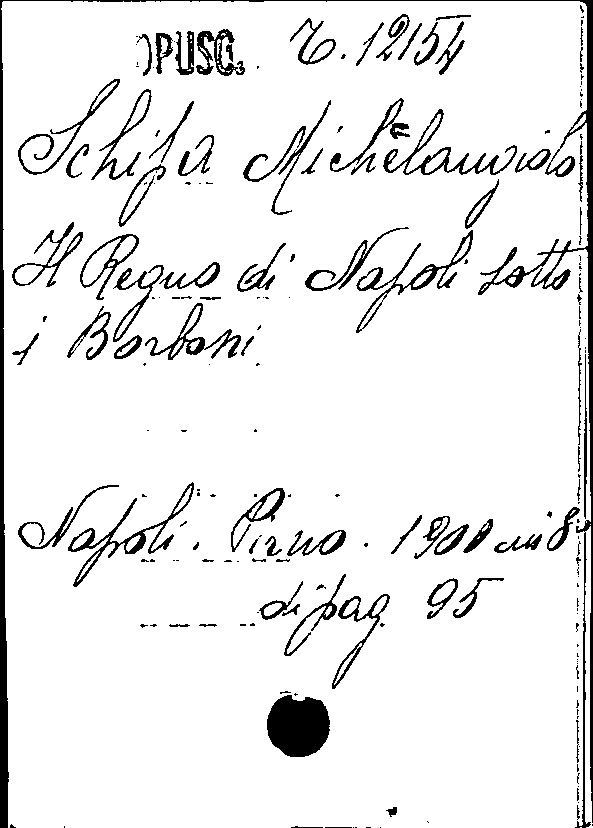 OPUSC. T. 12154
Schipa Michelangiolo
Il Regno di Napoli sotto
i Borboni
Napoli. Pirno. 1900 in 8°
di pag. 95